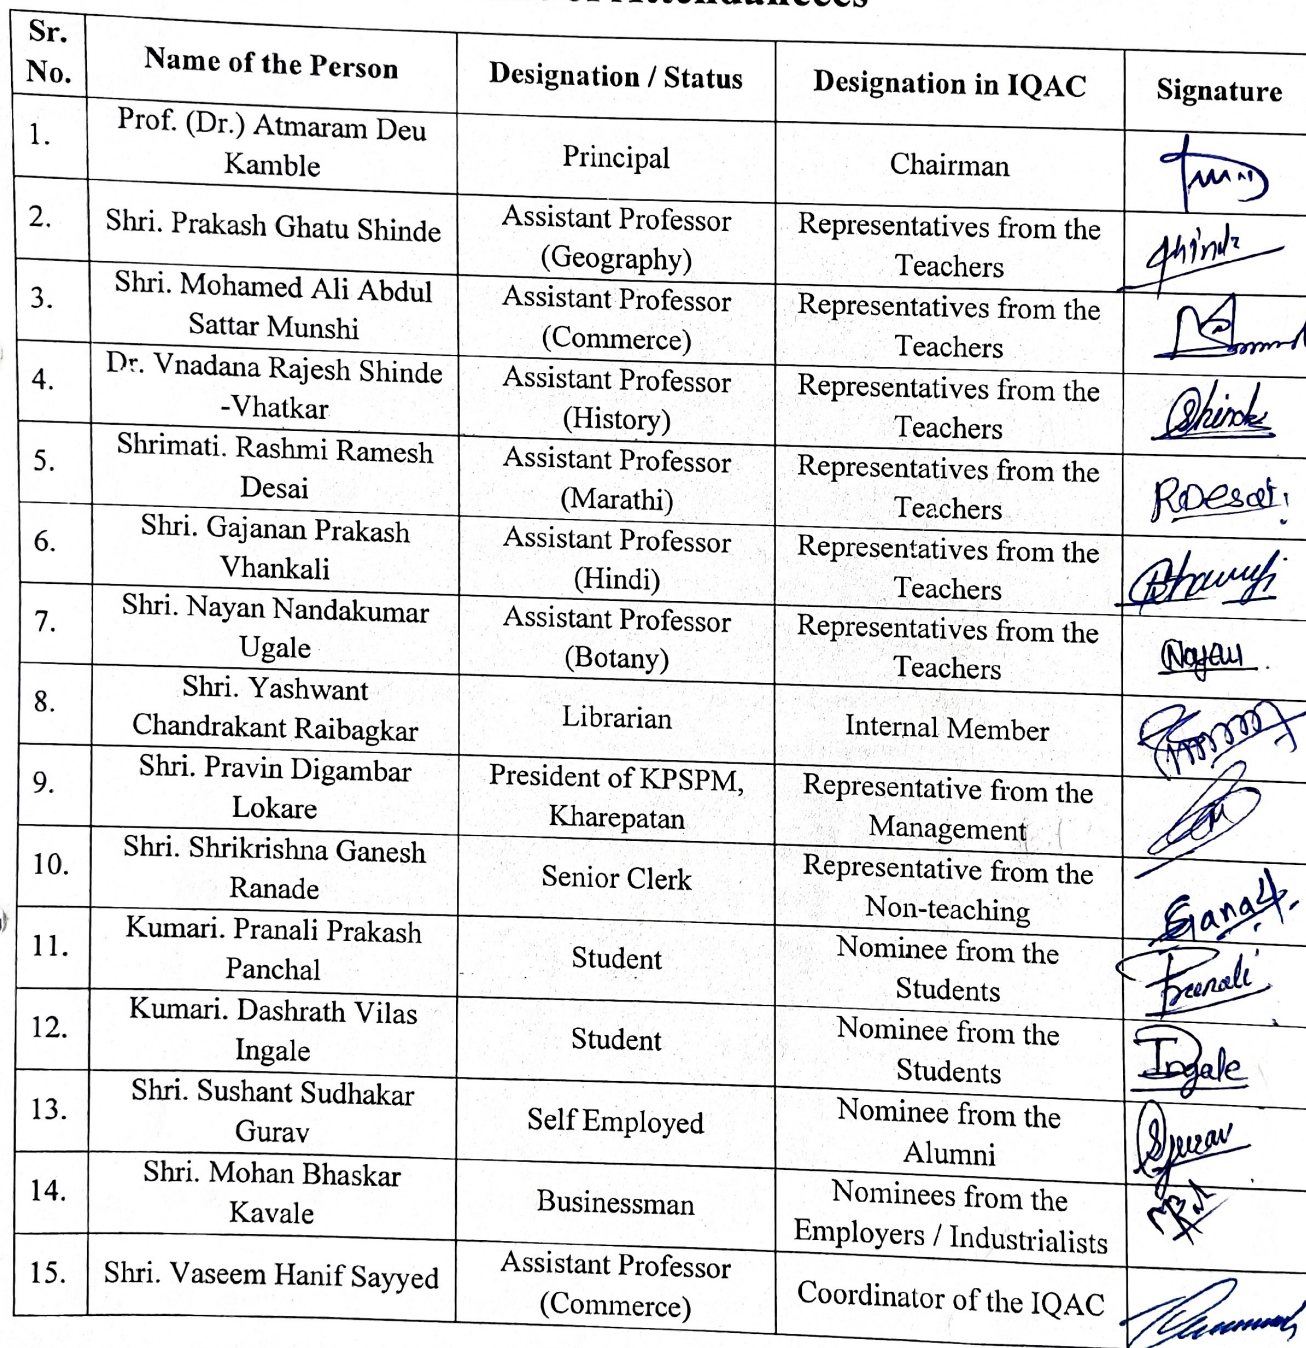 of Attendancecs
Sr. No. Name of the Person Designation / Status Designation in IQAC Signature
1. Prof. (Dr.) Atmaram Deu Kamble Principal Chairman
2. Shri. Prakash Ghatu Shinde Assistant Professor (Geography) Representatives from the Teachers Shinde
3. Shri. Mohamed Ali Abdul Sattar Munshi Assistant Professor (Commerce) Representatives from the Teachers
4. Dr. Vnadana Rajesh Shinde -Vhatkar Assistant Professor (History) Representatives from the Teachers Shinde
5. Shrimati. Rashmi Ramesh Desai Assistant Professor (Marathi) Representatives from the Teachers RDesai
6. Shri. Gajanan Prakash Vhankali Assistant Professor (Hindi) Representatives from the Teachers
7. Shri. Nayan Nandakumar Ugale Assistant Professor (Botany) Representatives from the Teachers Nayan
8. Shri. Yashwant Chandrakant Raibagkar Librarian Internal Member
9. Shri. Pravin Digambar Lokare President of KPSPM, Kharepatan Representative from the Management
10. Shri. Shrikrishna Ganesh Ranade Senior Clerk Representative from the Non-teaching
11. Kumari. Pranali Prakash Panchal Student Nominee from the Students Pranali
12. Kumari. Dashrath Vilas Ingale Student Nominee from the Students Ingale
13. Shri. Sushant Sudhakar Gurav Self Employed Nominee from the Alumni Gurav
14. Shri. Mohan Bhaskar Kavale Businessman Nominees from the Employers / Industrialists
15. Shri. Vaseem Hanif Sayyed Assistant Professor (Commerce) Coordinator of the IQAC